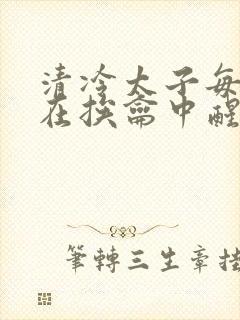 清冷太子每
在挨龠中醒
筆轉三生章掛